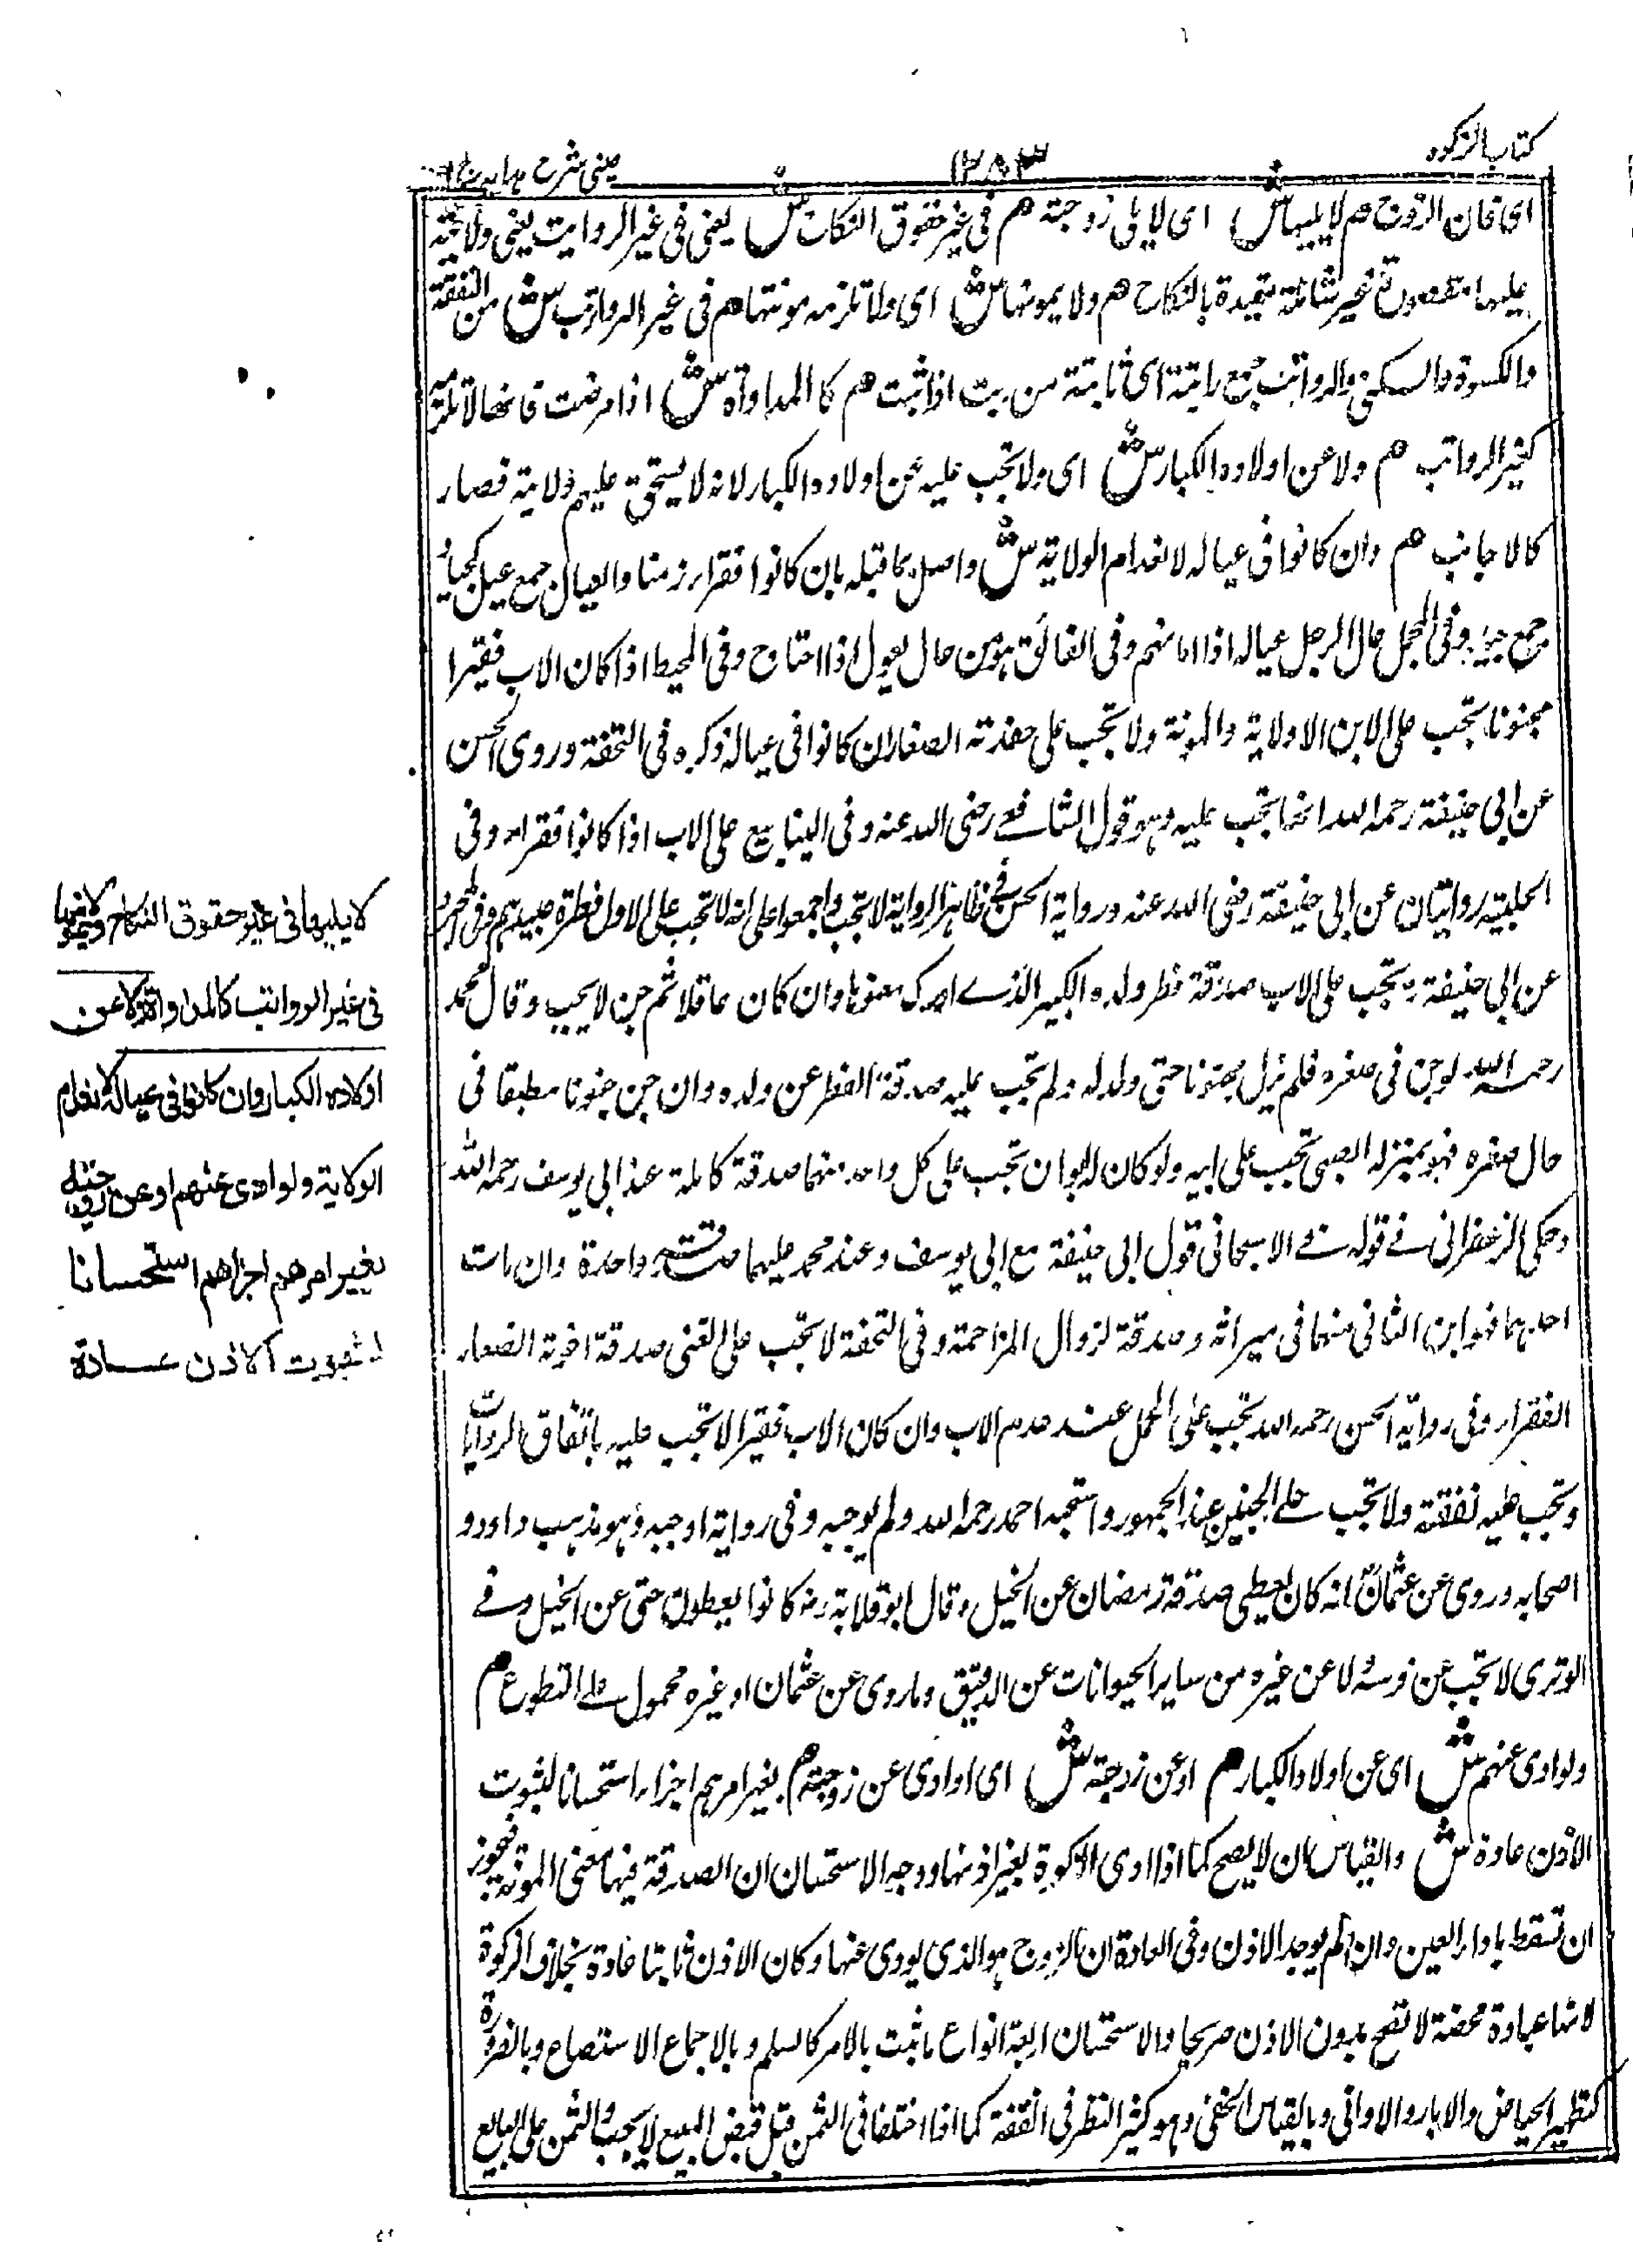 كتاب الزكوة
١٢٨٣
عينى شرح هدايه ج ١
اى فان الزوج هم لا يليها ش اى لا يلى زوجته هم فى غير حقوق النكاح ش يعنى فى غير الروايت يعنى ولايته
عليها مقصورة غير شاملة مقيدة بالنكاح هم ولا يمونها ش اى ولا تلزمه مونتها هم فى غير الرواتب ش من النفقة
والكسوة والسكنى والرواتب جمع راتبة اى ثابتة من رتب اذا ثبت هم كالمداواة ش اذا مرضت فانها لا تلزمه
كغير الرواتب هم ولا عن اولاده الكبار ش اى ولا تجب عليه عن اولاده الكبار لانه لا يستحق عليهم ولاية فصار
كالاجانب هم وان كانوا فى عياله لانعدام الولاية ش واصل بما قبله بان كانوا فقراء زمنا والعيال جمع عيل كجياد
جمع جيد وفى المجمل عال الرجل عياله اذا مانهم وفى الفائق هو من عال يعول اذا احتاج وفى المحيط اذا كان الاب فقيرا
مجنونا تجب على الابن الاولاية والمونة ولا تجب على حفدته الصغار ان كانوا فى عياله ذكره فى التحفة وروى الحسن
عن ابى حنيفة رحمه الله انها تجب عليه وهو قول الشافعے رضى الله عنه وفى الينابيع على الاب اذا كانوا فقراء وفى
الحلبية روايتان عن ابى حنيفة رضى الله عنه ورواية الحسن فى ظاهر الرواية لا تجب واجمعوا على انه لا تجب على الاول فطرة عبيدهم وفى
عن ابى حنيفة رح تجب على الاب صدقة فطر ولده الكبير الذے ادرك معتوها وان كان عاقلا ثم جن لا يجب وقال محمد
رحمه الله لو جن فى صغره فلم يزل مجنونا حتى ولد له ولم تجب عليه صدقة الفطر عن ولده وان جن جنونا مطبقا فى
حال صغره فهو بمنزلة الصبى تجب على ابيه ولو كان له ابوان تجب على كل واحد منهما صدقة كاملة عند ابى يوسف رحمه الله
وحكى الزعفرانى فے قوله فے الاسبيجابى قول ابى حنيفة مع ابى يوسف وعند محمد عليهما صدقة واحدة وان مات
احدهما فهو ابن الثانى منهما فى ميراثه وصدقة لزوال المزاحمة وفى التحفة لا تجب على الغنى صدقة اخوته الصغار
الفقراء وفى رواية الحسن رحمه الله تجب على عند عدم الاب وان كان الاب فقيرا لا تجب عليه باتفاق الروايات
وتجب عليه نفقته ولا تجب علے الجنين عند الجمهور واستحبه احمد رحمه الله ولم يوجبه وفى رواية اوجبه وهو مذهب داود و
اصحابه وروى عن عثمان انه كان يعطى صدقة رمضان عن الحبل وقال ابو قلابة رضه كانوا يعطون حتى عن الحبل وفے
الوترى لا تجب عن فرسه ولا عن غيره من ساير الحيوانات عن الدقيق وما روى عن عثمان او غيره محمول علے التطوع هم
ولو ادى عنهم ش اى عن اولاد الكبار هم او عن زوجته ش اى او ادى عن زوجته هم بغير امرهم اجزاء استحسانا لثبوت
الاذن عادة ش والقياس ان لا يصح كما اذا ادى الزكوة بغير اذنها ووجه الاستحسان ان الصدقة فيها معنى المونة فيجوز
ان تسقط باداء الغير وان لم يوجد الاذن وفى العادة ان الزوج هو الذى يودى عنها وكان الاذن ثابتا عادة بخلاف الزكوة
لانها عبادة محضة لا تصح بدون الاذن صريحا والاستحسان اربعة انواع ما ثبت بالامر كالسلم وبالاجماع الاستصناع وبالضرورة
كتطهير الحياض والابار والاوانى وبالقياس الخفى وهو كثير النظر فى الفقه كما اذا اختلفا فى الثمن قبل قبض المبيع لا يجب الثمن على البايع
لا يليها فى غير حقوق النكاح ولا يمونها
فى غير الرواتب كالمداواة ولا عن
اولاده الكبار وان كانوا فى عياله لانعدام
الولاية ولو ادى عنهم او عن زوجته
بغير امرهم اجزاهم استحسانا
لثبوت الاذن عادة